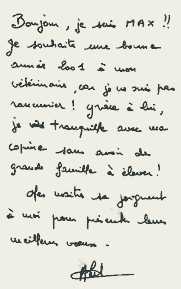 Bonjour, je suis MAX !!
Je souhaite une bonne
année 2001 à mon
vétérinaire, car je ne suis pas
rancunier ! grâce à lui,
je vis tranquille avec ma
copine sans avoir de
grande famille à élever !
Mes maîtres se joignent
à moi pour présenter leurs
meilleurs voeux.